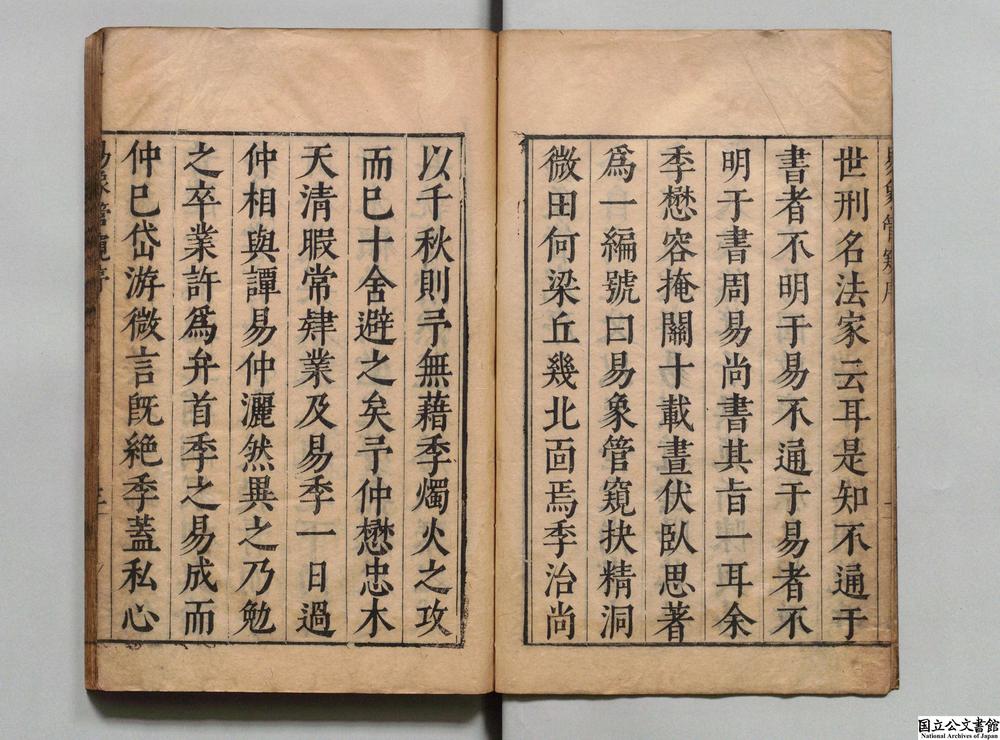 世刑名法家云耳是知不通于
書者不明于易不通于易者不
明于書周易尚書其旨一耳余
季懋容掩關十載晝伏臥思著
爲一編號曰易象管窺抉精洞
微田何梁丘幾北面焉季治尚
以千秋則予無藉季燭火之攻
而已十舍避之矣予仲懋忠木
天清暇常肄業及易季一日過
仲相與譚易仲灑然異之乃勉
之卒業許爲弁首季之易成而
仲已岱游微言旣絶季蓋私心
易象管窺序
国立公文書館
National Archives of Japan